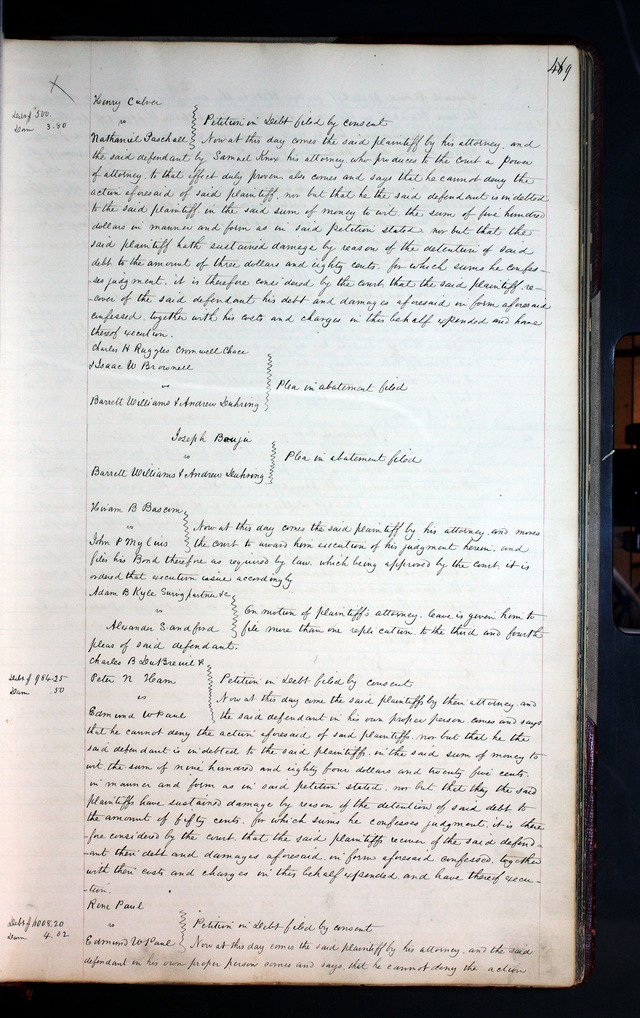 469
Henry Culver
Debt $ 500.
vs
Petition in Debt filed by consent
Dam 3.80
Nathaniel Paschall Now at this day comes the said plaintiff by his attorney, and
the said defendant by Samuel Knox his attorney, who produces to the court a power
of attorney, to that effect duly proven also comes and says that he cannot deny the
action aforesaid of said plaintiff, nor but that he the said defendant is indebted
to the said plaintiff in the said sum of money to wit, the sum of five hundred
dollars in manner and form as in said petition stated, nor but that the
said plaintiff hath sustained damage by reason of the detention of said
debt to the amount of three dollars and eighty cents. for which sums he confes-
-ses judgment. it is therefore considered by the court, that the said plaintiff, re-
-cover of the said defendant his debt and damages aforesaid in form aforesaid
confessed, together with his costs and charges in this behalf expended and have
thereof execution.
Charles H Ruggles Cromwell Chace
& Isaac W Brownell
vs
Plea in abatement filed
Barrett Williams & Andrew Duhring
Joseph
vs
Plea in abatement filed
Barrett Williams & Andrew Duhring
Hiram B Bascom
vs
Now at this day comes the said plaintiff by his attorney, and moves
John P the court to award him execution of his judgment herein, and
files his Bond therefore as required by law, which being approved by the court, it is
ordered that execution issue accordingly
Adam B Kyle Survg partner &c
vs
On motion of plaintiffs attorney, leave is given him to
Alexander Sandford file more than one replication to the third and fourth
pleas of said defendant.
Charles B DuBreuil &
Debt $ 984.25
Peter N Ham Petition in Debt filed by consent
Dam .50
vs
Now at this day come the said plaintiffs by their attorney, and
Edmund W Paul the said defendant in his own proper person comes and says
that he cannot deny the action aforesaid of said plaintiffs, nor but that he the
said defendant is indebted to the said plaintiffs, in the said sum of money to
wit, the sum of nine hundred and eighty four dollars and twenty five cents.
in manner and form as in said petition stated, nor but that they the said
plaintiffs have sustained damage by reason of the detention of said debt, to
the amount of fifty cents, for which sums he confesses judgment. it is there
fore considered by the court, that the said plaintiffs recover of the said defend-
-ant their debt and damages aforesaid, in form aforesaid confessed, together
with their costs and charges in this behalf expended and have thereof execu-
-tion.
Rene Paul
Debt $ 1008.20
vs
Petition in Debt filed by consent
Dam 4.02
Edmund W Paul Now at this day comes the said plaintiff by his attorney, and the said
defendant in his own proper person comes and says, that he cannot deny the action